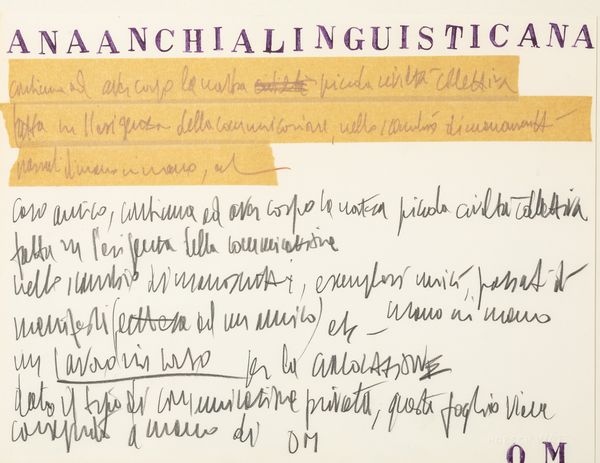 ANAANCHIALINGUISTICANA
continua ad aver corpo la nostra civiltà piccola civiltà collettiva
fatta su l'esigenza della comunicazione, nello scambio di manoscritti
passati di mano in mano, ed
caro amico, continua ad aver corpo la nostra piccola civiltà collettiva
fatta su l'esigenza della comunicazione
nello scambio di manoscritti, esemplari unici, passati di
mano in mano
manifesti ( ad un amico) etc –
un lavoro in corso per la CIRCOLAZIONE
dato il tipo di comunicazione privata, questo foglio viene
consegnato a mano di OM
OM